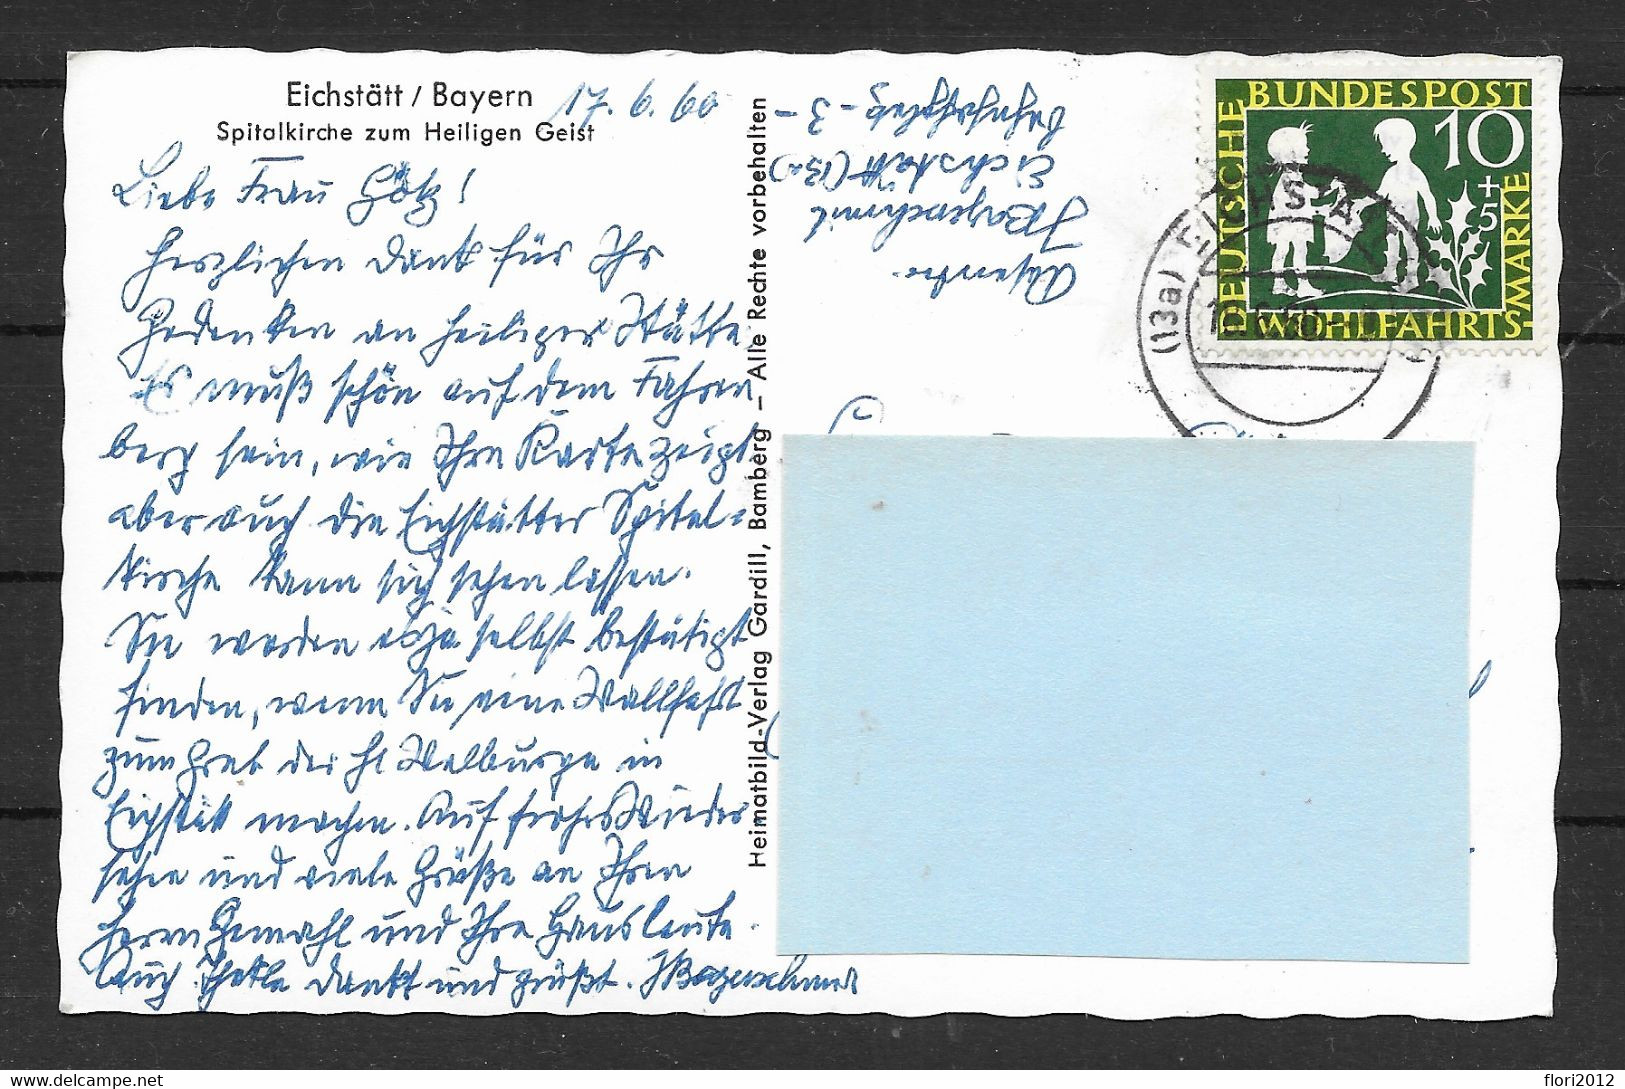 Eichstätt / Bayern
Spitalkirche zum Heiligen Geist
17. 6. 60
Liebe Frau Götz!
Herzlichen Dank für Ihr
Gedenken an heiliger Stätte.
Es muß schön auf dem Fahren
berg sein, wie Ihre Karte zeigt
aber auch die Eichstätter Spital=
kirche kann sich sehen lassen.
Sie werden es ja selbst bestätigt
finden, wenn Sie eine Wallfahrt
zum Grab der hl Walburga in
Eichstätt machen. Auf frohes Wieder
sehen und viele Grüße an Ihren
Herrn Gemahl und Ihre Hausleute.
Auch Thekla dankt und grüßt.
Heimatbild-Verlag Gardill, Bamberg – Alle Rechte vorbehalten
Absender
Eichstätt (13a)
- 3 -
DEUTSCHE BUNDESPOST
10
+5
WOHLFAHRTS-MARKE
(13a) EICHSTÄTT
www.delcampe.net
flori2012